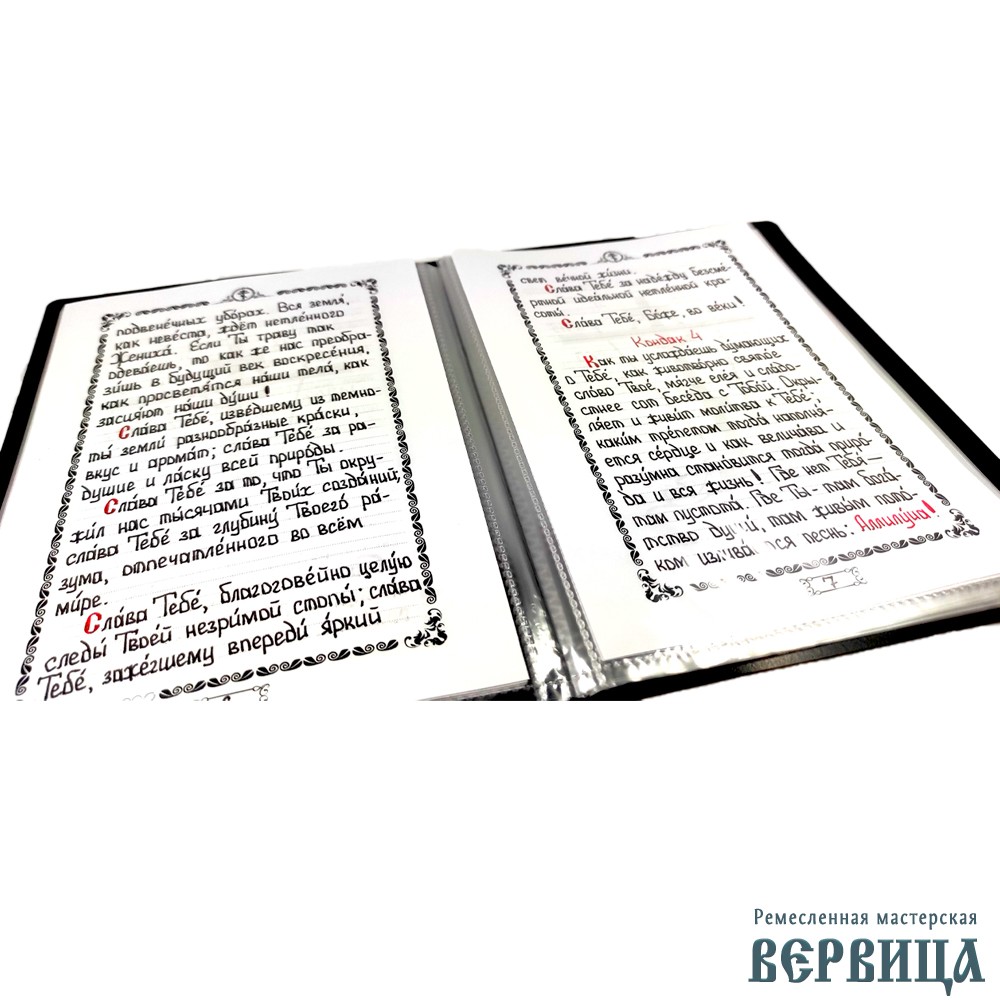 подвене́чных убо́рах. Вся земля́,
как неве́ста, ждёт нетле́нного
Жениха́. Если Ты траву так
одева́ешь, то как же нас преобра-
зи́шь в будущий век воскресе́ния,
как просветя́тся на́ши тела́, как
засия́ют на́ши ду́ши!
Сла́ва Тебе́, изве́дшему из темно-
ты́ земли́ разнообра́зные кра́ски,
вкус и арома́т; сла́ва Тебе́ за ра-
душие и ла́ску всей приро́ды.
Сла́ва Тебе́ за то, что Ты окру-
жи́л нас ты́сячами Твои́х созда́ний;
сла́ва Тебе́ за глубину́ Твоего́ ра́-
зума, отпечатле́нного во всём
ми́ре.
Сла́ва Тебе́, благогове́йно целу́ю
следы́ Твое́й незри́мой стопы́; сла́ва
Тебе́, заже́гшему впереди́ я́ркий
свет ве́чной жи́зни.
Сла́ва Тебе́ за наде́жду бессме́-
ртной идеа́льной нетле́нной кра-
соты́.
Сла́ва Тебе́, Бо́же, во ве́ки!
Кондак 4
Как ты услажда́ешь ду́мающих
о Тебе́, как животво́рно свято́е
сло́во Твое́, мя́гче еле́я и сла́до-
стнее сот бесе́да с Тобо́й. Окры-
ля́ет и живи́т моли́тва к Тебе́;
каки́м тре́петом тогда́ наполня́-
ется се́рдце и как велича́ва и
разу́мна стано́вится тогда́ приро́-
да и вся жизнь! Где нет Тебя́—
там пустота́. Где Ты - там бога́-
тство там живы́м пото́-
ком песнь: Аллилу́иа!
7
Ремесленная мастерская
ВЕРВИЦА